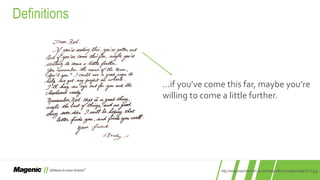 Definitions
Dear Red,
If you're reading this, you've gotten out
And if you've come this far, maybe you're
willing to come a little further.
You remember the name of the town,
don't you? I could use a good man to
help me get my project on wheels.
I'll keep an eye out for you and the
chessboard ready.
Remember, Red. Hope is a good thing,
maybe the best of things, and no good
thing ever dies. I will be hoping that
this letter finds you, and finds you well.
Your friend
Andy
…if you've come this far, maybe you're
willing to come a little further.
Magenic